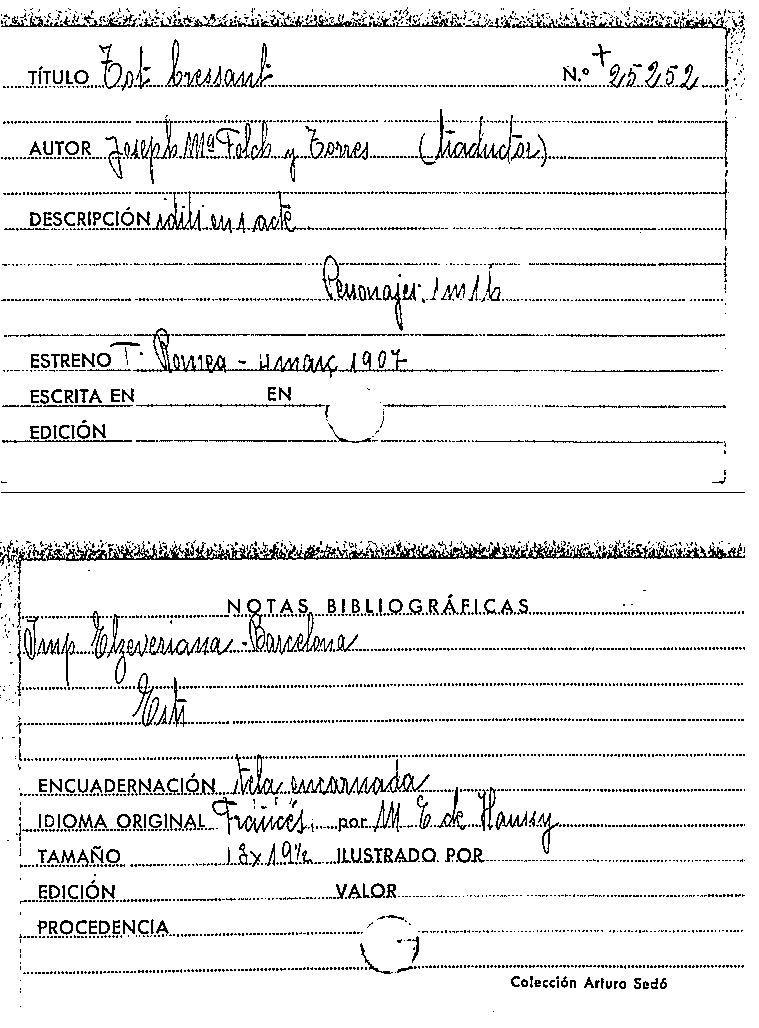 TÍTULO Tot bressant N.º +25252
AUTOR Joseph Mª Folch y Torres (traductor)
DESCRIPCIÓN idili en 1 acte
Personajes, 1m 1h
ESTRENO T. Romea - 4 març 1907
ESCRITA EN EN
EDICIÓN
NOTAS BIBLIOGRÁFICAS
Imp Elzeveriana - Barcelona
ENCUADERNACIÓN tela encarnada
IDIOMA ORIGINAL Francés, por M E de
TAMAÑO 13x19½ ILUSTRADO POR
EDICIÓN VALOR
PROCEDENCIA
Colección Arturo Sedó